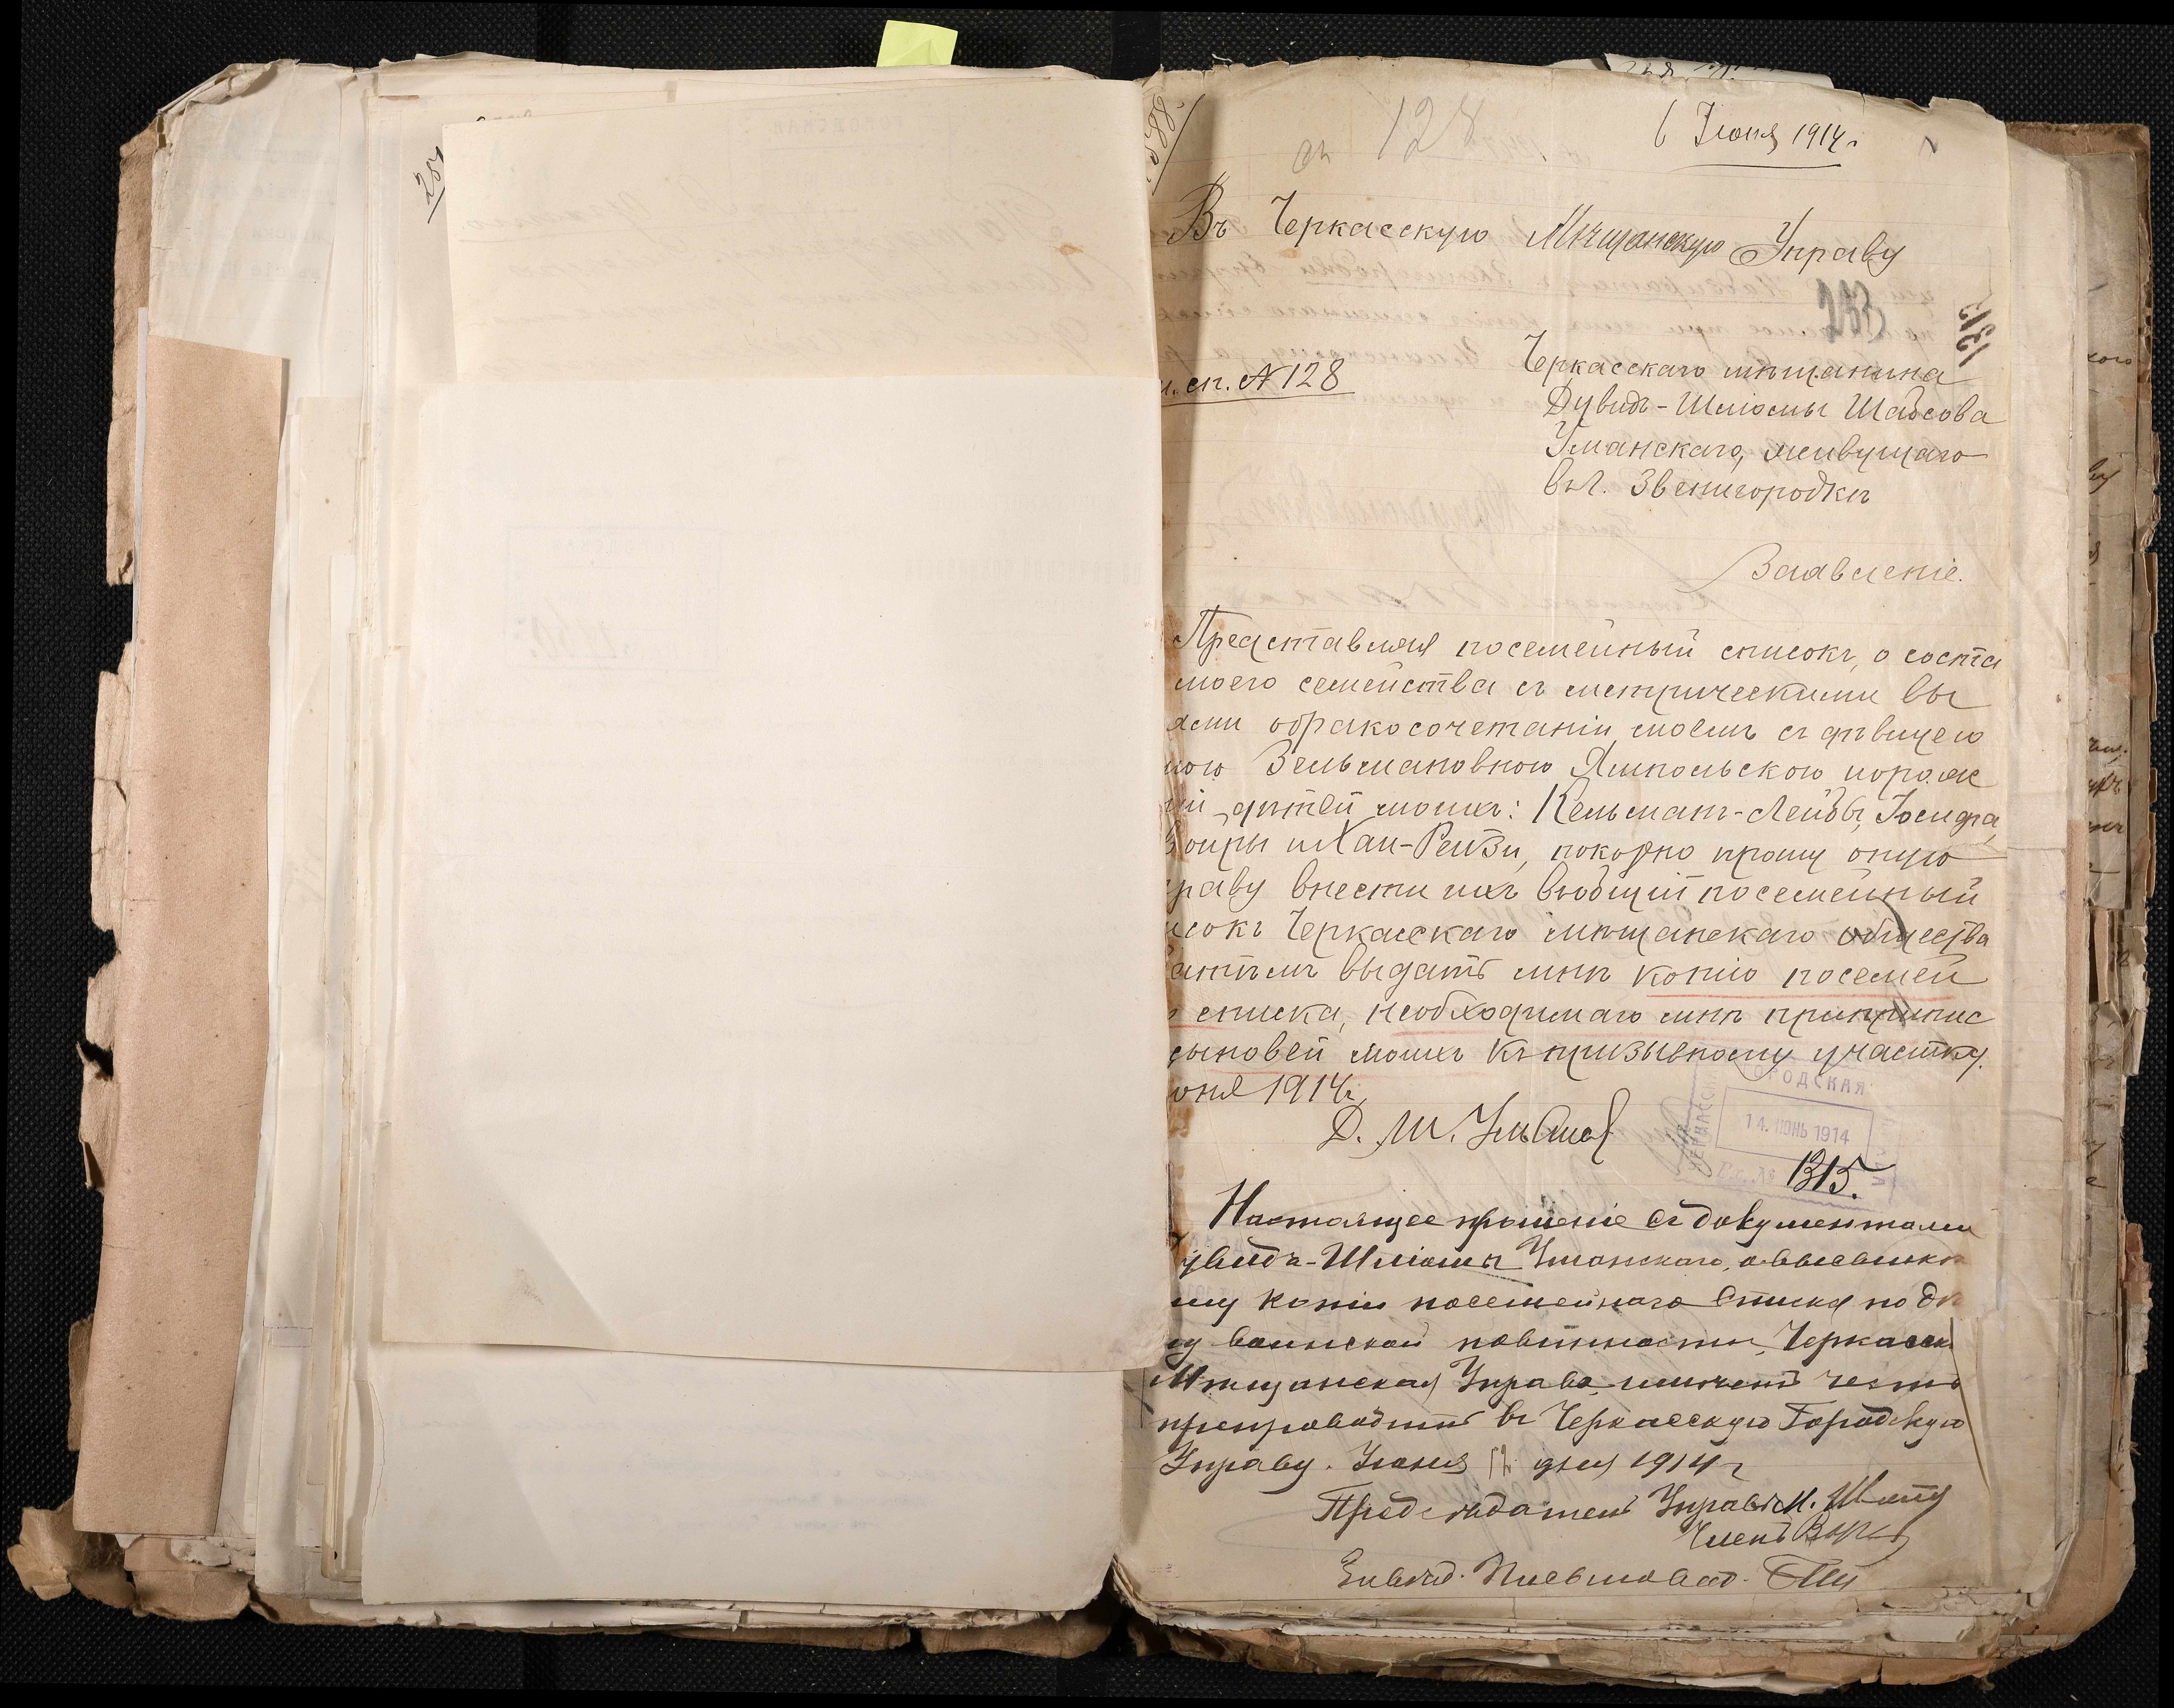 128
6 Іюня 1914 г.
Въ Черкасскую Мѣщанскую Управу
233
п. сп. № 128
Черкасскаго мѣщанина
Дувидъ-Шліомы Шаѳсова
Уманскаго, живущаго
въ г. Звенигородкѣ
Заявленіе.
Представляя посемейный списокъ, о соста
моего семейства съ метрическими вы
ями о бракосочетаніи моемъ съ дѣвицею
ною Зельмановною Ямпольскою и о рож
ій дѣтей моихъ: Кельманъ-Лейбы, Іосифа,
Сойры и Хаи-Рейзи, покорно прошу оную
праву внести ихъ въ общій посемейный
исокъ Черкасскаго мѣщанскаго общества
затѣмъ выдать мнѣ копію посемей
списка, необходимаго мнѣ при припис
сыновей моихъ къ призывному участку.
юня 1914 г.
Д. Ш. Уманск
ЧЕРКАССКАЯ ГОРОДСКАЯ
14. ІЮНЬ 1914
Вх. № 1315.
Настоящее прошеніе съ документами
увидъ-Шліомы Уманскаго, о высылкѣ
му копіи посемейнаго списка по дѣ
лу воинской повинности, Черкасск
Мѣщанская Управа имѣетъ честь
препроводить въ Черкасскую Городскую
Управу. Іюня 12 дня 1914 г
Предсѣдатель Управы М.
Членъ
Письмовод.